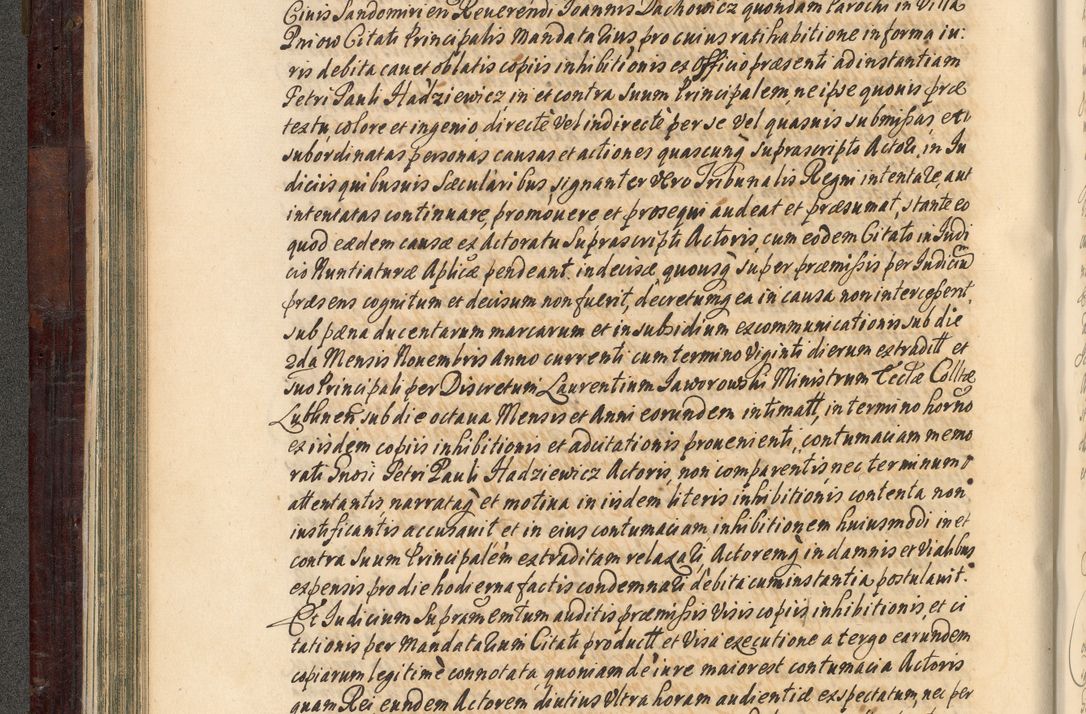 Civis Sandomirien Reuerendi Joannis Dachowicz quondam Parochi in Villa
Pniow Citati Principalis Mandatarius, pro cuius ratihabitione in forma iu:
ris debita cauet oblatis copiis inhibitionis ex Officio præsenti ad instantiam
Petri Pauli Hadziewicz in et contra suum Principalem, ne ipse quouis præ
textu, colore et ingenio directè vel indirectè per se vel quasuis submissas, et
subordinatas personas causas et actiones quascunq suprascripto Actori, in Iu
diciis quibusuis Sæcularibus, signanter vero Tribunalis Regni intentare, aut
intentatas continuare, promouere et prosequi audeat et præsumat, stante eo
quod eædem causæ ex Actoratu suprascripti Actoris cum eodem Citato in Judi
cio Nuntiaturæ Aplicæ pendeant indecisæ quousq super præmissis per Iudiciū
præsens cognitum et decisum non fuerit, decretumq ea in causa non intercesserit,
sub pæna ducentarum marcarum et in subsidium excommunicationis sub die
2da Mensis Nouembris Anno currenti cum termino Viginti dierum extraditt et
suo Principali per Discretum Laurentium Jaworowski Ministrum Eccłæ Colltæ
Lublinen sub die octaua Mensis et Anni eorundem intimatt, in termino horno
ex iisdem copiis inhibitionis et adcitationis prouenienti, contumaciam memo
rati Gnosi Petri Pauli Hadziewicz Actoris, non comparentis, nec terminum
attentantis, narrataq et motiua in iisdem literis inhibitionis contenta non
iustificantis accusauit et in eius contumaciam, inhibitionem huiusmodi in et
contra suum Principalem extraditam relaxari, Actoremq in damnis et Vialibus
expensis pro die hodierna factis condemnari debita cum instantia postulauit.
Et Iudicium supramemtum auditis præmissis Visis copiis inhibitionis, et ci
tationis per Mandatarium Citati productt et Visa executione a tergo earundem
copiarum legitimè connotata, quoniam de iure maior est contumacia Actoris
quam Rei eundem Actorem diutius Vltra horam audientiæ expectatum, nec per